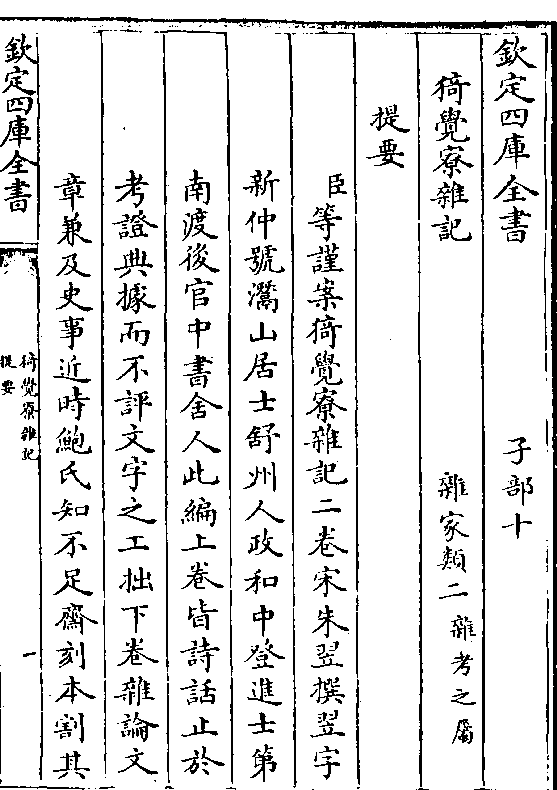 欽定四庫全書　子部十
猗覺寮雜記　雜家類二雜考之屬
提要
臣等謹案猗覺寮雜記二卷宋朱翌撰翌字
新仲號灊山居士舒州人政和中登進士第
南渡後官中書舍人此編上卷皆詩話止於
考證典據而不評文字之工拙下卷雜論文
章兼及史事近時鮑氏知不足齋刻本割其
欽定四庫全書
猗覺寮雜記
提要
一